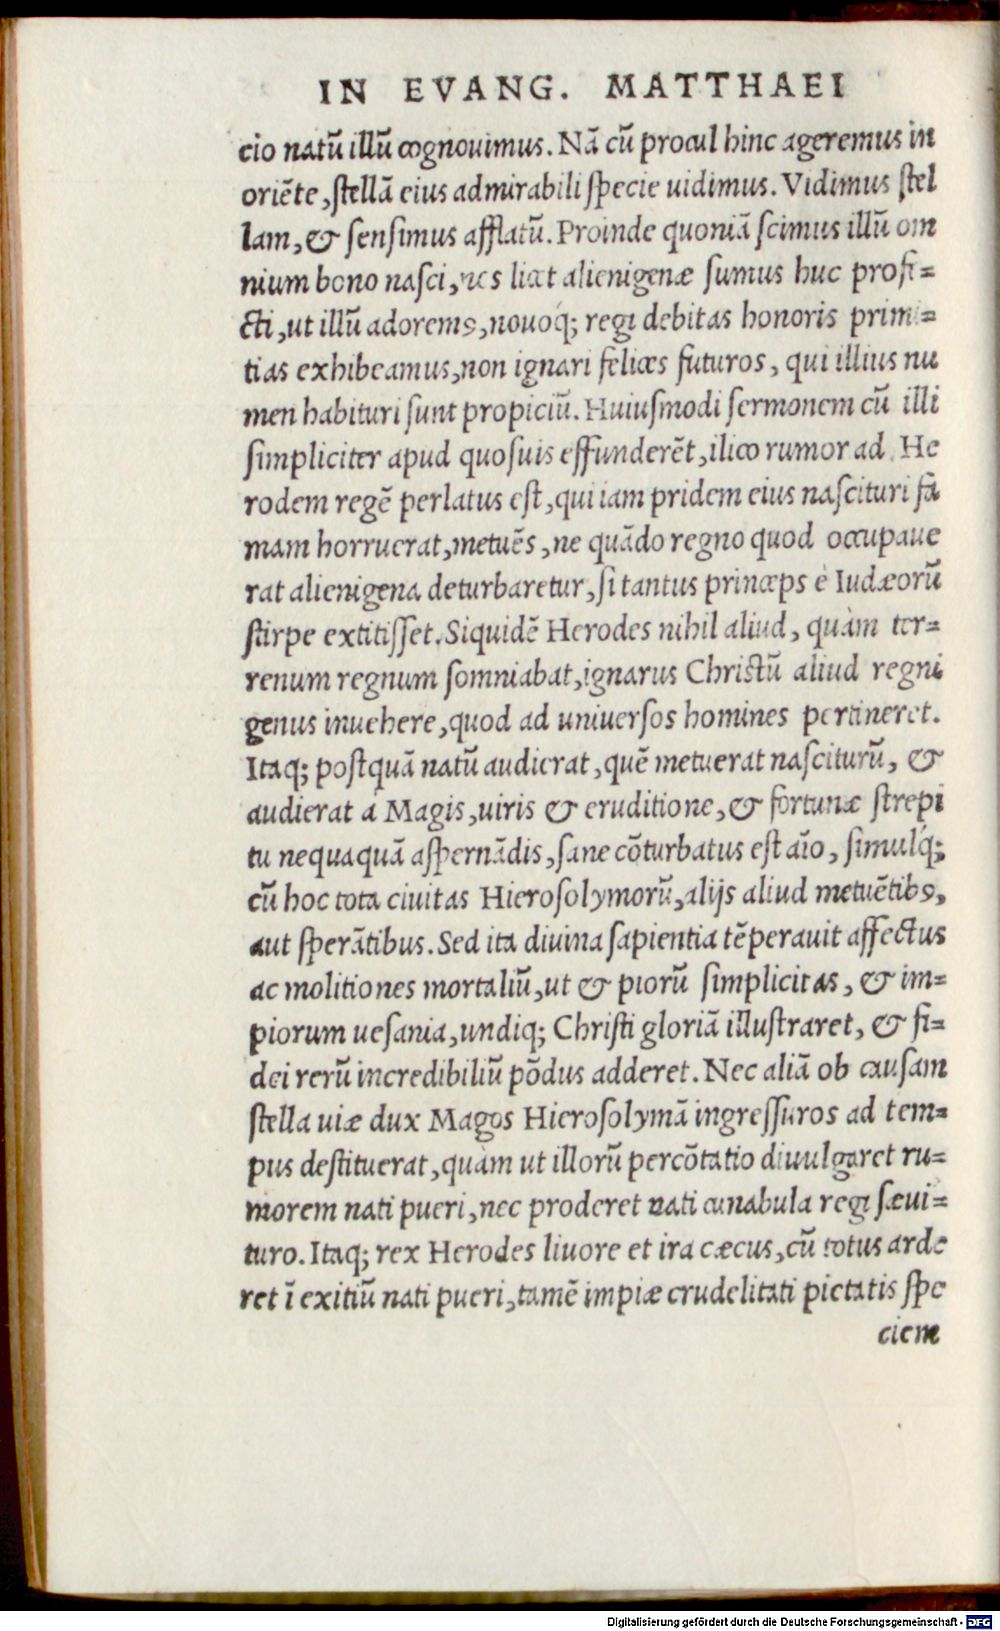 IN EVANG. MATTHAEI
cio natū illū cognouimus. Nā cū procul hinc ageremus in
oriēte, stellā eius admirabili specie uidimus. Vidimus stel
lam, & sensimus afflatū. Proinde quoniā scimus illū om
nium bono nasci, nos licet alienigenæ sumus huc profi=
cti, ut illū adoremꝰ, nouoq́; regi debitas honoris primi=
tias exhibeamus, non ignari felices futuros, qui illius nu
men habituri sunt propiciū. Huiusmodi sermonem cū illi
simpliciter apud quosuis effunderēt, ilico rumor ad He
rodem regē perlatus est, qui iam pridem eius nascituri fa
mam horruerat, metuēs, ne quādo regno quod occupaue
rat alienigena deturbaretur, si tantus princeps è Iudæorū
stirpe extitisset. Siquidē Herodes nihil aliud, quàm ter=
renum regnum somniabat, ignarus Christū aliud regni
genus inuehere, quod ad uniuersos homines pertineret.
Itaq; postquā natū audierat, quē metuerat nasciturū, &
audierat à Magis, uiris & eruditione, & fortunæ strepi
tu nequaquā aspernādis, sane cōturbatus est aīo, simulq́;
cū hoc tota ciuitas Hierosolymorū, alijs aliud metuētibꝰ,
aut sperātibus. Sed ita diuina sapientia tēperauit affectus
ac molitiones mortaliū, ut & piorū simplicitas, & im=
piorum uesania, undiq; Christi gloriā illustraret, & fi=
dei rerū incredibiliū pōdus adderet. Nec aliā ob causam
stella uiæ dux Magos Hierosolymā ingressuros ad tem=
pus destituerat, quàm ut illorū percōtatio diuulgaret ru=
morem nati pueri, nec proderet nati cunabula regi sæui=
turo. Itaq; rex Herodes liuore et ira cæcus, cū totus arde
ret ī exitiū nati pueri, tamē impiæ crudelitati pietatis spe
ciem
Digitalisierung gefördert durch die Deutsche Forschungsgemeinschaft - DFG